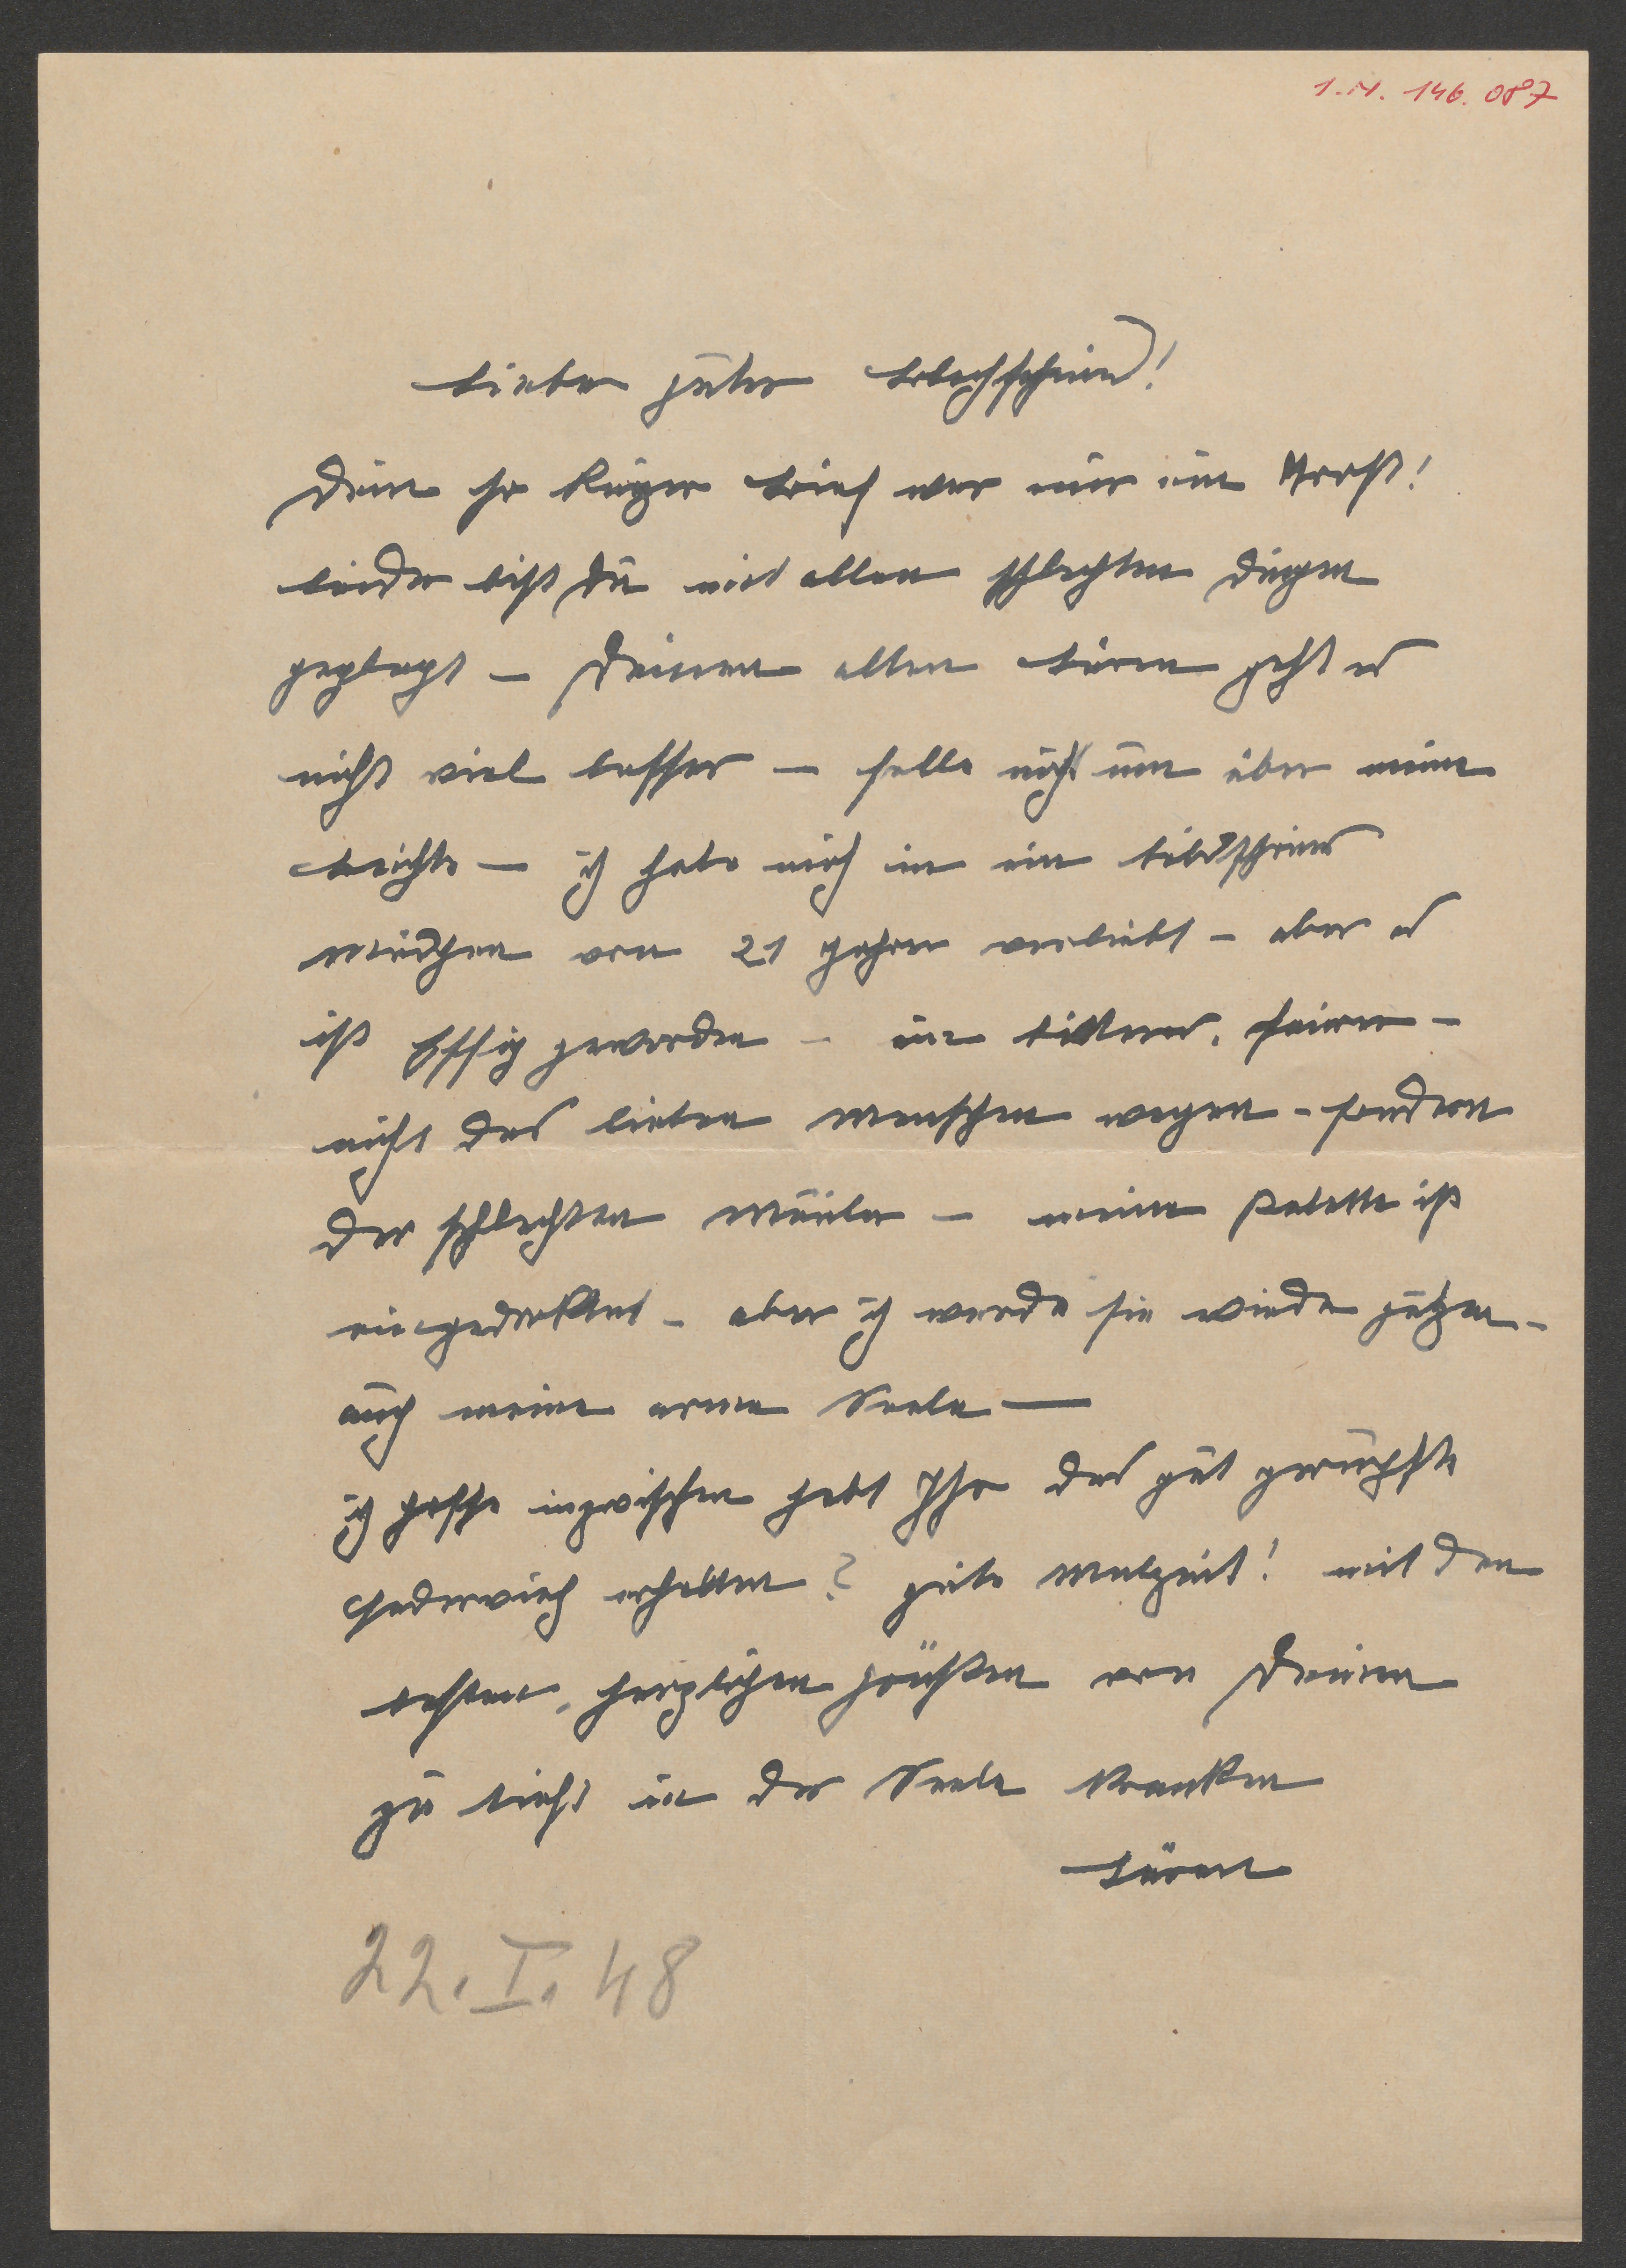 1.N. 146.087
Lieber guter Blechschmid!
Dein so kurzer Brief war mir ein Trost!
leider bist Du mit allen schlechten Dingen
geplagt – Deinem alten Türm geht es
nicht viel besser – falle nicht um über meine
Beichte – ich habe mich in ein bildschönes
Mädchen von 21 Jahren verliebt – aber es
ist Essig geworden – ein bitterer,
nicht des lieben Menschen wegen – sondern
der schlechten Mäuler – meine Palette ist
eingetrocknet – aber ich werde sie wieder putzen –
auch meine arme Seele –
ich hoffe inzwischen habt Ihr das gut geräucherte
Federvieh erhalten? gute Malzeit! mit den
besten, herzlichen Grüßen von Deinem
zu tiefst in der Seele kranken
Türm
22. I. 48